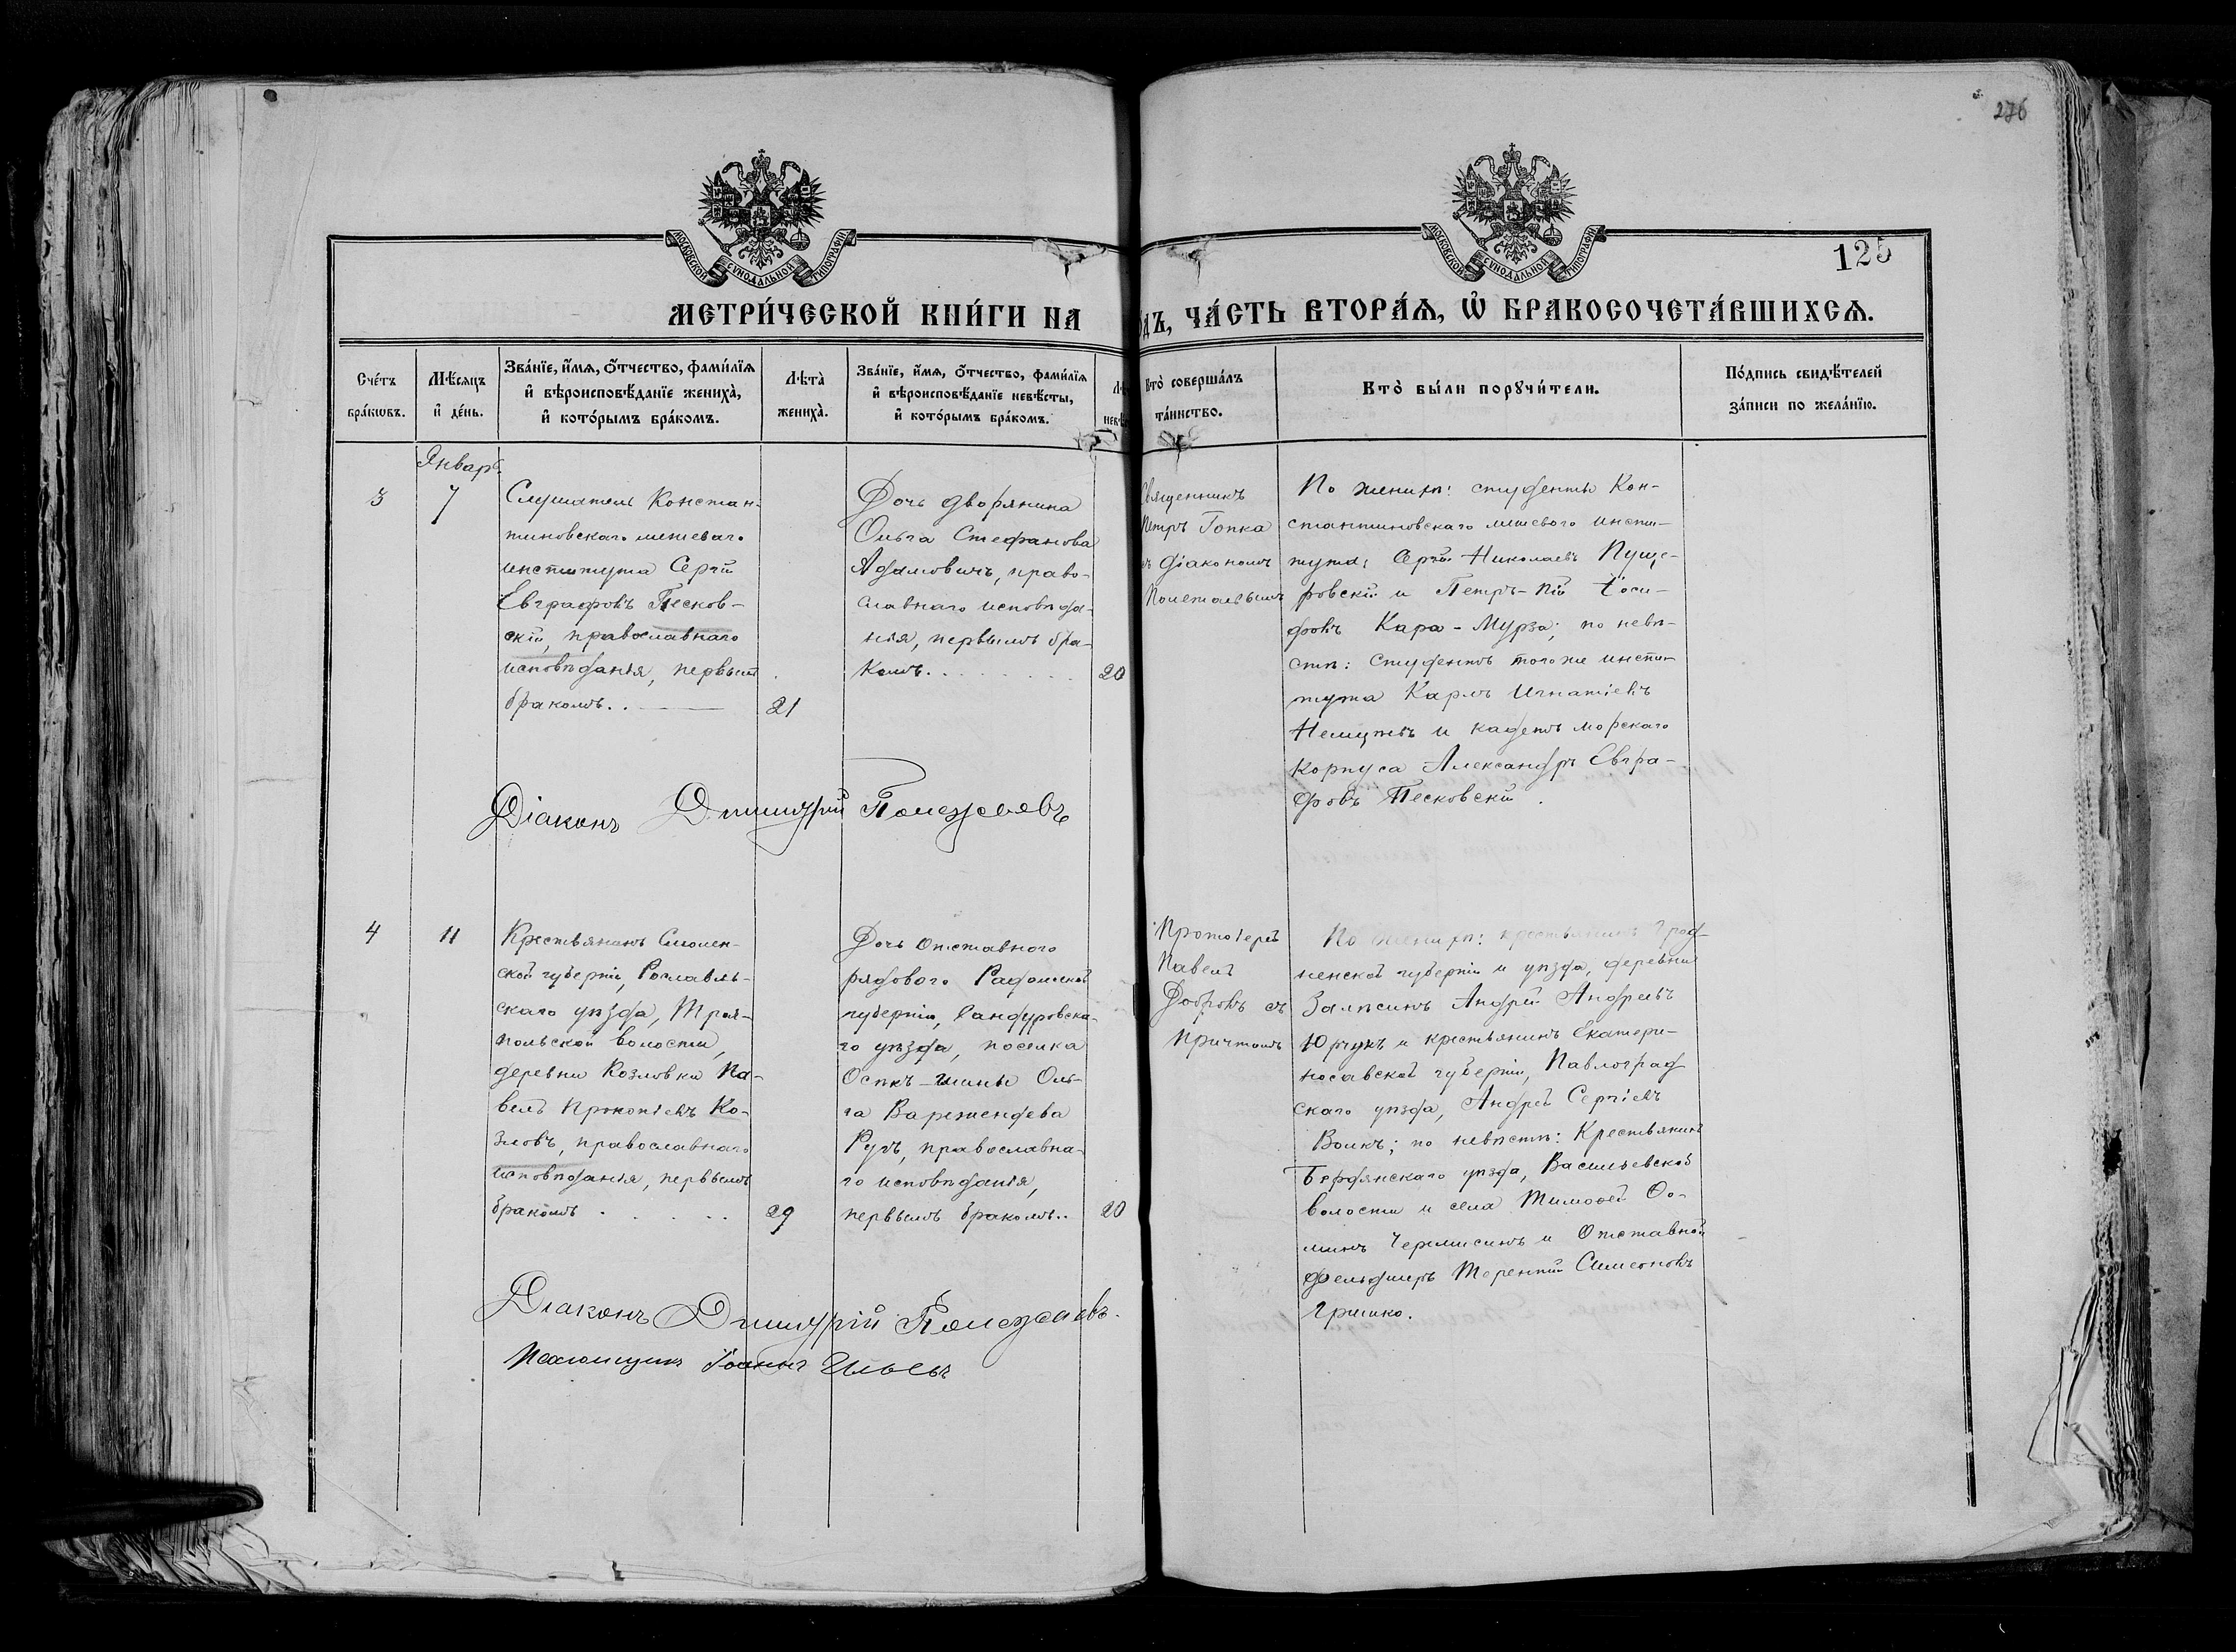 276
125
МОСКОВСКОЙ СУНОДАЛЬНОЙ ТИПОГРАФІИ
МОСКОВСКОЙ СУНОДАЛЬНОЙ ТИПОГРАФІИ
МЕТРИ́ЧЕСКОЙ КНИ́ГИ НА
ДЪ, ЧА́СТЬ ВТОРА́Ѧ, Ѡ҆ БРАКОСОЧЕТА́ВШИХСѦ.
Сче́тъ
бра́кѡвъ.
Мѣ́сяцъ
и҆ де́нь.
Зва́нїе, и҆́мѧ, о҆́тчество, фами́лїѧ
и҆ вѣроисповѣ́данїе жениха̀,
и҆ кото́рымъ бра́комъ.
Лѣта̀
жениха̀.
Зва́нїе, и҆́мѧ, о҆́тчество, фами́лїѧ
и҆ вѣроисповѣ́данїе невѣ́сты,
и҆ кото́рымъ бра́комъ.
Кто̀ соверша́лъ
та́инство.
Кто̀ бы́ли порꙋчи́тели.
По́дпись свидѣ́телей
за́писи по жела́нїю.
Январь
3
7
Слушатель Констан-
тиновскаго межеваго
института Сергѣй
Евграфовъ Песков-
скій, православнаго
исповѣданія, первымъ
бракомъ..
21
Дочь дворянина
Ольга Стефанова
Адамовичъ, право-
славнаго исповѣда-
нія, первымъ бра-
комъ.
20
Священникъ
Петръ Гопка
съ діакономъ
По женихѣ: студенты Кон-
стантиновскаго межеваго инсти-
тута: Сергѣй Николаевъ
и Петръ-Пій Іоси-
фовъ Кара-Мурза; по невѣ-
стѣ: студентъ того же инсти-
тута Карлъ Игнатіевъ
и кадетъ морскаго
корпуса Александръ Евгра-
фовъ Песковскій.
Діаконъ Дмитрій
4
11
Крестьянинъ Смолен-
ской губерніи, Рославль-
скаго уѣзда,
польской волости,
деревни Козловки Па-
велъ Прокопіевъ Ко-
зловъ, православнаго
исповѣданія, первымъ
бракомъ
29
Дочь отставного
рядового Радомской
губерніи, Сандуровска-
го уѣзда, поселка
Оль-
га
православна-
го исповѣданія,
первымъ бракомъ..
20
Протоіерей
Павелъ
Добровъ съ
причтомъ
По женихѣ: крестьянинъ Грод-
ненской губерніи и уѣзда, деревни
Андрей Андреевъ
Юрчукъ и крестьянинъ Екатери-
носавской губерніи, Павлоград
скаго уѣзда, Андрей Сергіевъ
Волкъ; по невѣстѣ: Крестьянинъ
Бердянскаго уѣзда, Васильевской
волости и села Тимофей Ѳо-
минъ Черемисинъ и Отставной
фельдшеръ Терентій Симеоновъ
Гришко.
Діаконъ Дмитрій
Псаломщикъ Іоаннъ Ильевъ